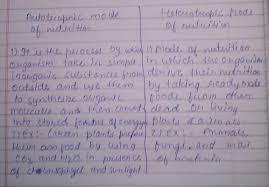 Autotrophic mode
of nutrition
1) It is the process by which
organism take in simple
inorganic substances from
outside and use them
to synthesize organic
molecules and then convert
into stored forms of energy
2) Ex:- Green plants prepare
their own food by using
CO2 and H2O in presence
of chlorophyll and sunlight
Heterotrophic Mode
of nutrition
1) Mode of nutrition
in which the organism
derive their nutrition
by taking ready made
foods from other
dead or living
plants & animals
2) Ex:- Animals,
fungi, and most
of bacteria.